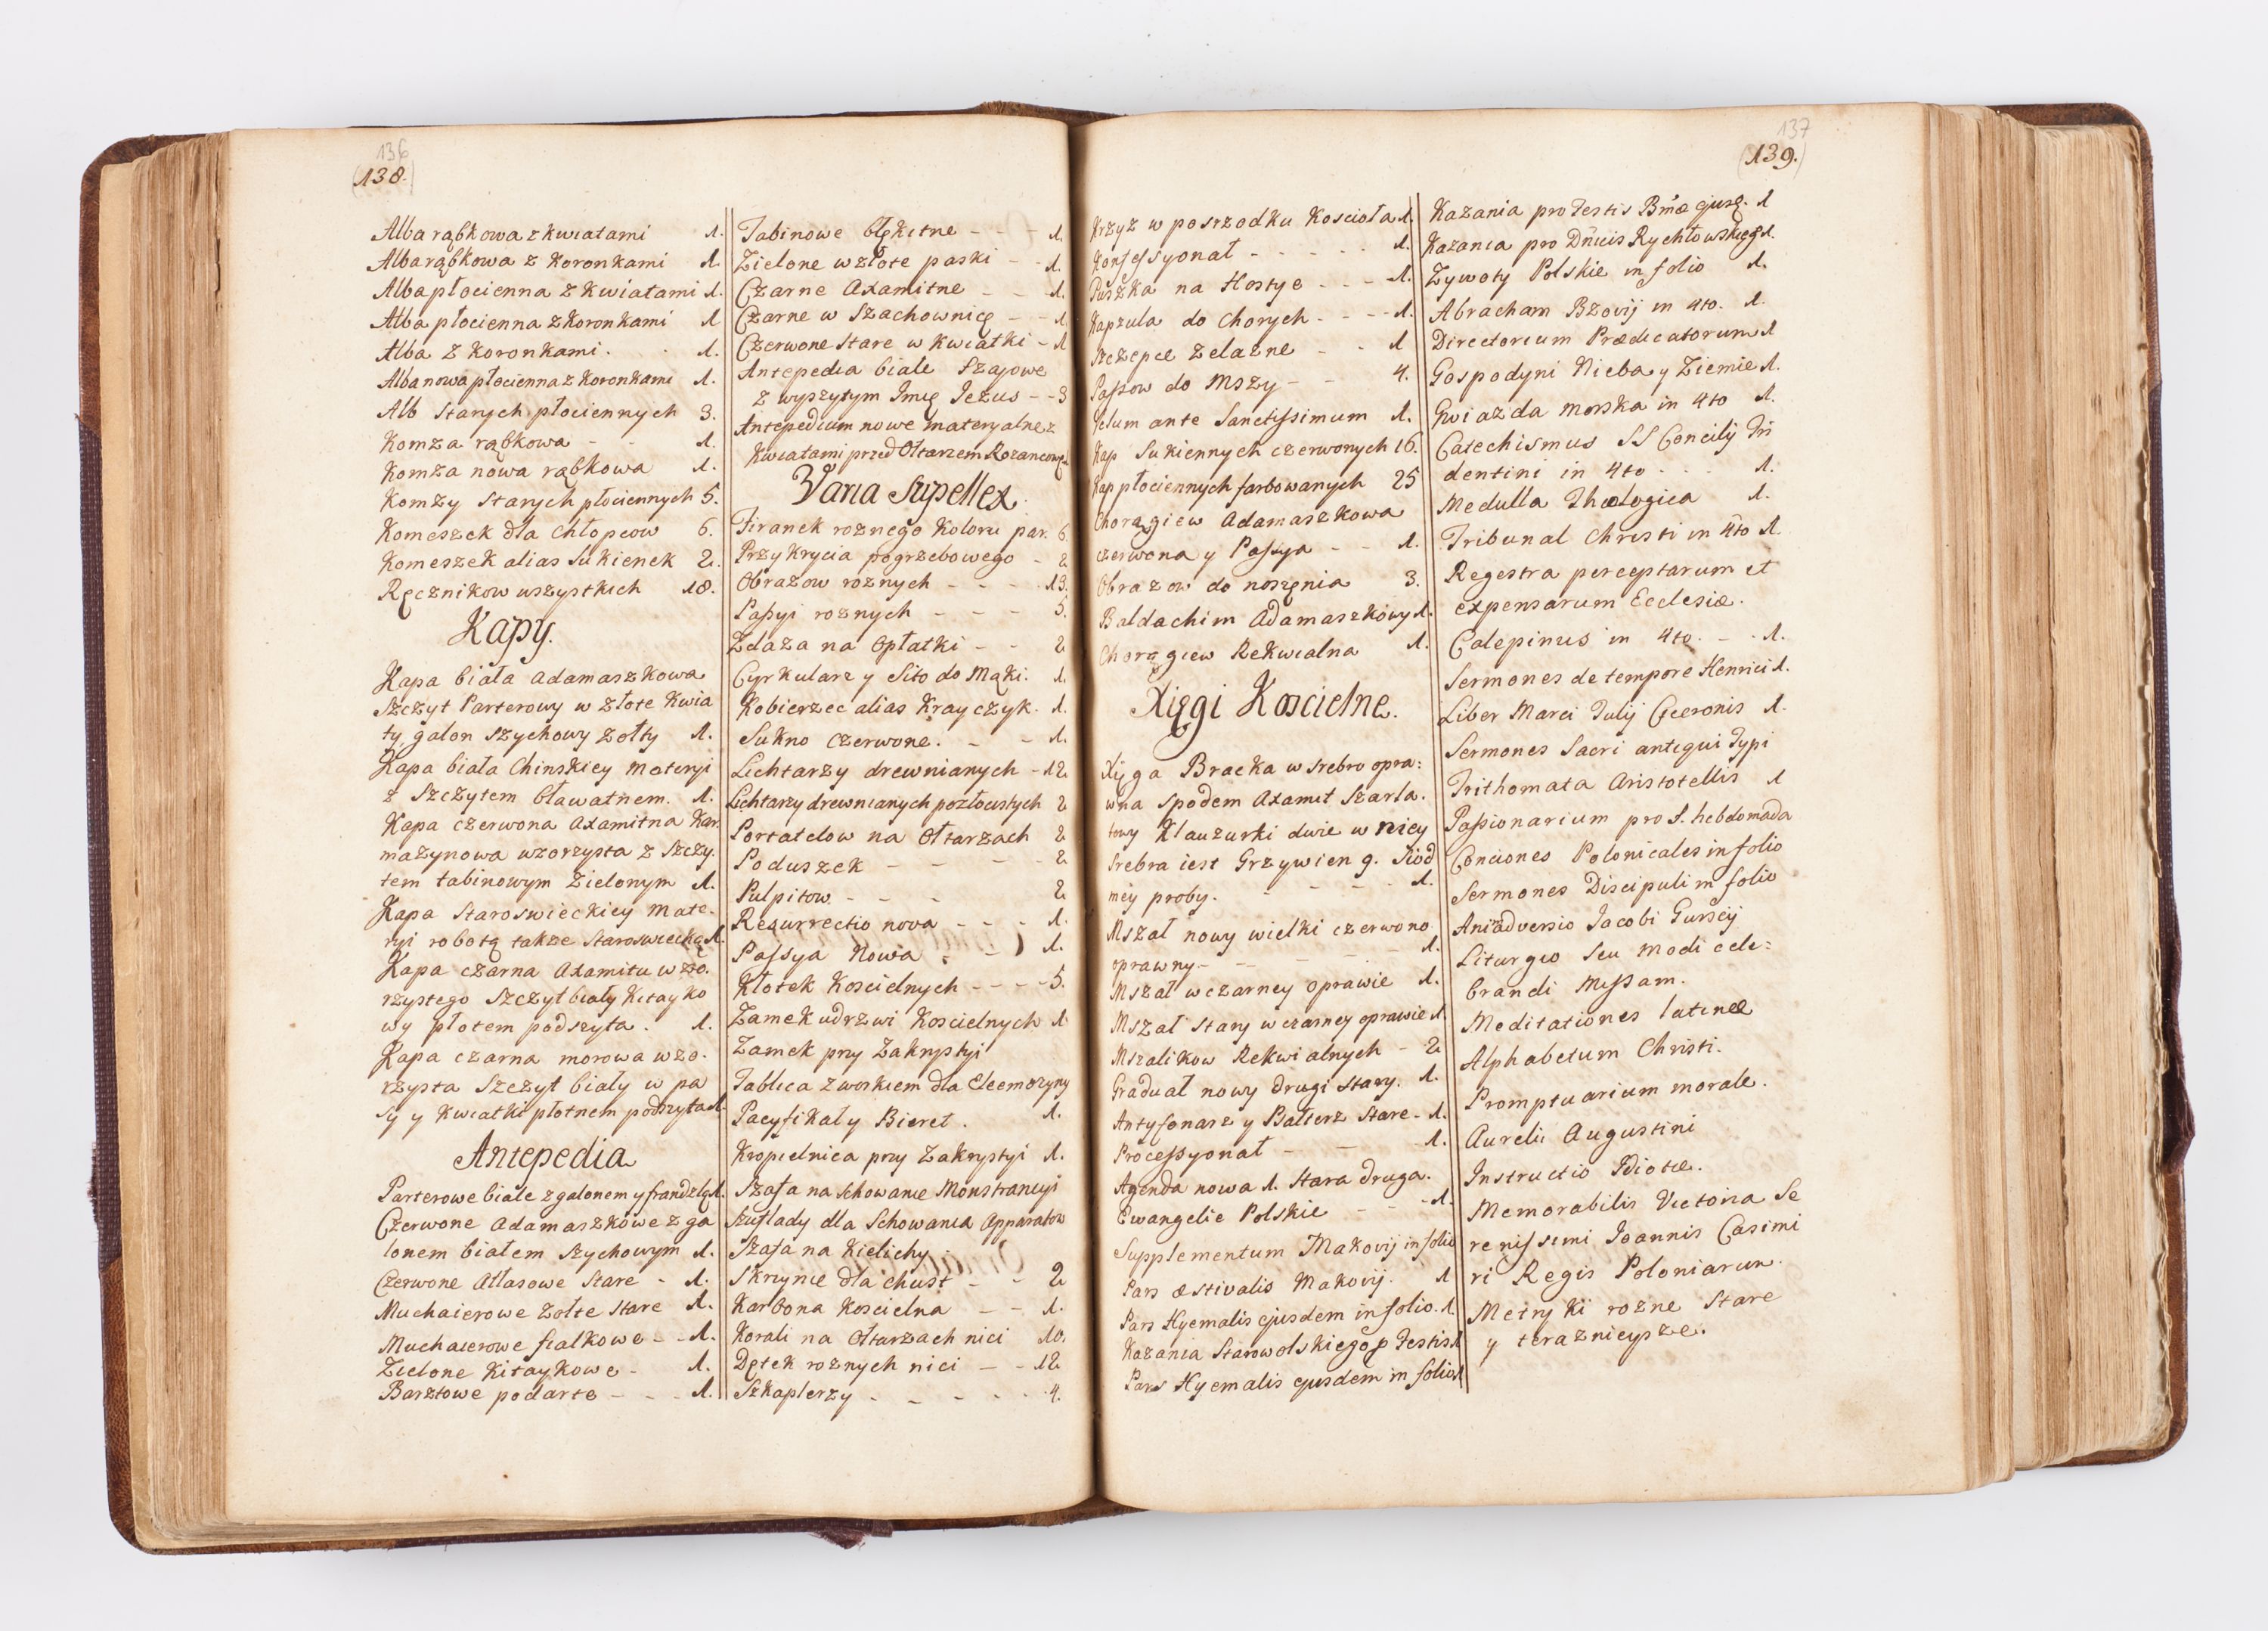 136
(138.)
Alba rąbkowa z kwiatami 1.
Alba rąbkowa z Koronkami 1.
Alba płocienna z Kwiatami 1.
Alba płocienna z Koronkami 1
Alba z Koronkami. . 1.
Alba nowa płocienna z Koronkami 1.
Alb starych płociennych 3.
Komza rąbkowa - - 1.
Komza nowa rąbkowa 1.
Komzy starych płociennych 5.
Komeszek dla Chłopcow 6.
Komeszek alias Sukienek 2.
Ręcznikow wszystkich 18.
Kapy.
Kapa biała adamaszkowa
Szczyt Parterowy w złote Kwia
ty galon szychowy zołty 1.
Kapa biała Chinskiey materyi
z Szczytem bławatnem. 1.
Kapa czerwona Axamitna Kar
mazynowa wzorzysta z szczy.
tem tabinowym Zielonym 1.
Kapa Staroswieckiey mate-
ryi robotą takze staroswiecką 1.
Kapa czarna Axamitu wzo.
rzystego Szczyt biały Kitayko
wy płotem podszyta. 1.
Kapa czarna morowa wzo.
rzysta Szczyt biały w pa
sy y Kwiatki płotnem podszyta 1.
Antepedia
Parterowe białe z galonem y frandzlą 1.
Czerwone Adamaszkowe z ga
lonem białem szychowym 1.
Czerwone Atłasowe Stare - 1.
Muchaierowe zołte stare 1.
Muchaierowe fialkowe - - 1.
Zielone Kitaykowe - 1.
Barztowe podarte - - - 1.
Tabinowe błękitne - - - 1.
Zielone w złote paski - - 1.
Czarne Axamitne - - 1.
Czarne w Szachownicę - - 1
Czerwone stare w kwiatki - 1
Antepedia białe Szajowe
z wyszytym Imię Jezus - - 3
Antepedium nowe materyalne z
Kwiatami przed Ołtarzem Rozancowy
Varia Supellex.
Firanek roznego Koloru par. 6.
Przykrycia pogrzebowego - 2
Obrazow roznych - - - 13.
Passyi roznych - - - 5.
Zelaza na Opłatki - - 2
Cyrkularz y Sito do Mąki. 1.
Kobierzec alias Krayczyk. 1.
Sukno czerwone. - - 1.
Lichtarzy drewnianych - 12
Lichtarzy drewnianych pozłocistych 2
Portatelow na Ołtarzach 2
Poduszek - - - - 2
Pulpitow - - - 2
Resurrectio nova - - - 1.
Passya Nowa - - 1.
Kłotek Koscielnych - - - - 5.
Zamek u drzwi Koscielnych 1
Zamek przy Zakrystyi
Tablica z workiem dla Eleemozyny
Pacyfikał y Biret. 1.
Kropielnica przy Zakrystyi 1.
Szafa na schowanie Monstrancyi
Szuflady dla Schowania Apparatow
Szafa na Kielichy.
Skrzynie dla chust - - 2
Karbona Koscielna - - 1.
Korali na Ołtarzach nici 10.
Dętek roznych nici - - 12
Szkaplerzy - - - - - 4.
137
(139.)
Krzyz w posrzodku Koscioła 1.
Konfessyonał - - - - 1.
Puszka na Hostye - - - 1.
Kapzula do Chorych - - - 1.
Szczepce Zelazne - - 1
Passow do Mszy - - 4.
Velum ante Sanctissimum 1.
Kap Sukiennych czerwonych 16.
Kap płociennych farbowanych 25
Chorągiew Adamaszkowa
czerwona y Passya - - 1.
Obrazow do noszęnia 3.
Baldachim Adamaszkowy 1.
Chorągiew Rekwialna 1.
Xięgi Koscielne.
Xięga Bracka w srebro opra:
wna spodem Axamit Szarła.
towy Klauzurki dwie w niey
srebra iest Grzywien 9. Siód
mey proby. - - - - 1.
Mszał nowy wielki czerwono
oprawny - - - - 1.
Mszał w czarney oprawie 1.
Mszał stary w czarney oprawie 1.
Mszalikow Rekwialnych - 2
Graduał nowy drugi stary. 1.
Antyfonarz y Psałterz Stare - 1.
Processyonał - - - 1.
Agenda nowa 1. Stara druga.
Ewangelie Polskie - - - 1.
Supplementum Makovij in folio
Pars æstivalis Makovij. 1
Pars Hyemalis ejusdem in folio. 1
Kazania Starowolskiego p Festis 1
Pars Hyemalis ejusdem in folio 1
Kazania pro Festis Bmæ ejusd. 1
Kazania pro Dnicis Rychłowskiego 1.
Zywoty Polskie in folio 1.
Abracham Bzovij in 4to. 1.
Directorium Prædicatorum 1
Gospodyni Nieba y Ziemie 1.
Gwiazda Morska in 4to 1.
Catechismus SS Concilij Tri
dentini in 4to - - - 1.
Medulla Theologica 1.
Tribunal Christi in 4to 1.
Regestra perceptarum et
expensarum Ecclesiæ.
Calepinus in 4to - - 1.
Sermones de tempore Henrici 1.
Liber Marci Tulij Ciceronis 1.
Sermones Sacri antiqui Typi
Trithomata Aristotellis 1
Passionarium pro S. hebdomada
Conciones Polonicales in folio
Sermones Discipuli in folio
Aniadversio Jacobi Gurscij
Liturgia seu Modi cele:
brandi Missam.
Meditationes latinæ
Alphabetum Christi.
Promptuarium morale.
Aurelii Augustini
Instructio Idiotæ.
Memorabilis Victoria Se
renissimi Joannis Casimi
ri Regis Poloniarum.
Metryki rozne Stare
y teraznieysze.